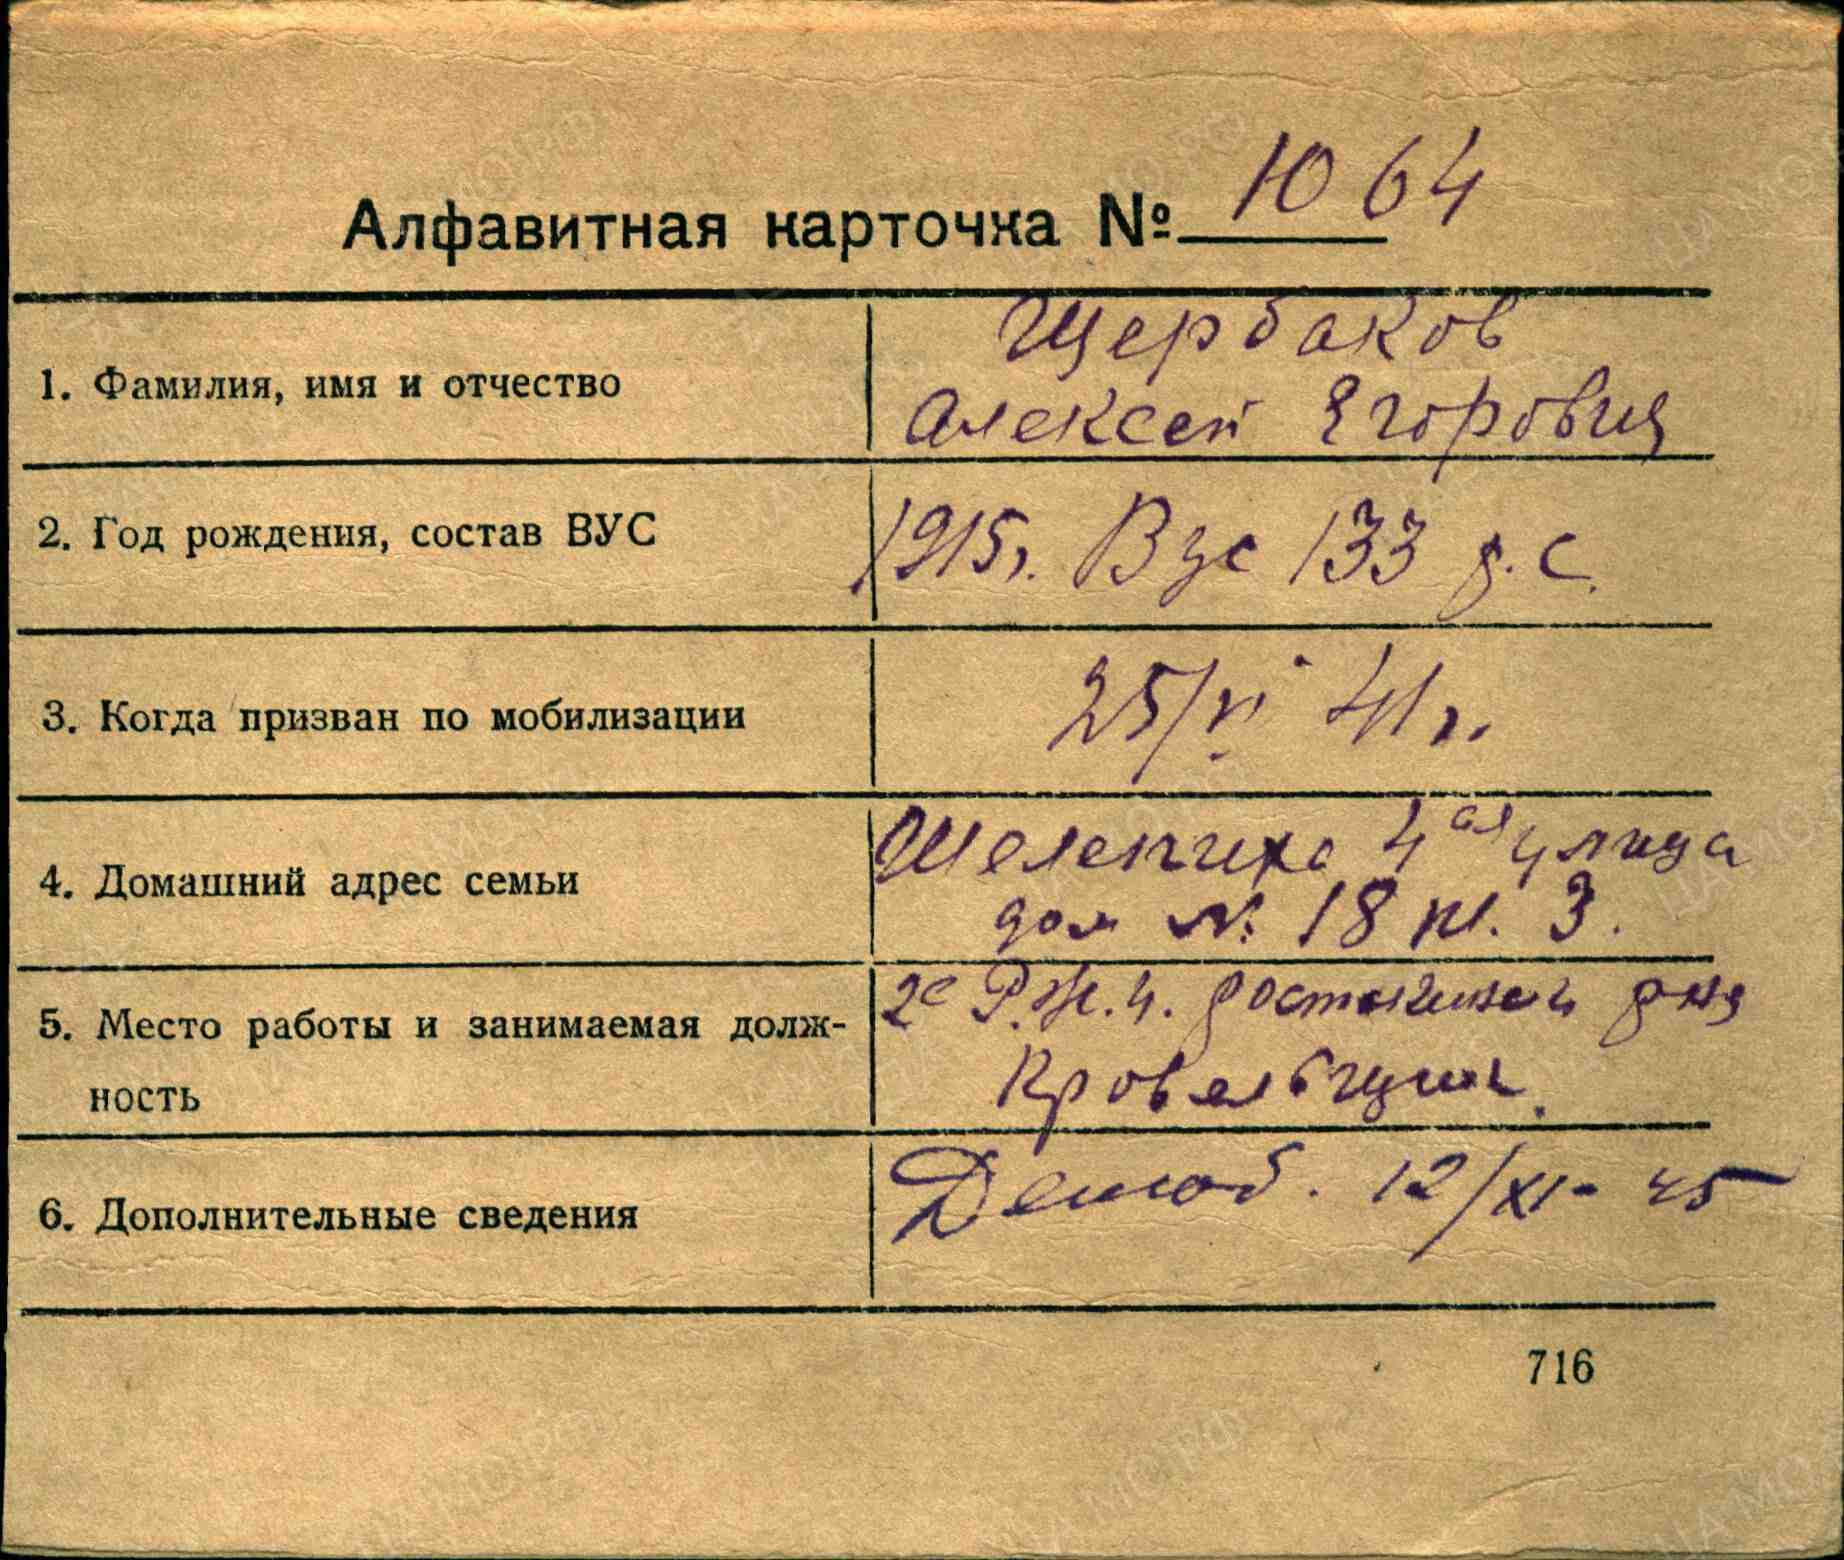 Алфавитная карточка № 1064
1. Фамилия, имя и отчество
Щербаков
Алексей Егорович
2. Год рождения, состав ВУС
1915г. Вус 133 р.с.
3. Когда призван по мобилизации
25/VI 41 г.
4. Домашний адрес семьи
Шелепиха 4ая улица
дом № 18 кв. 3.
5. Место работы и занимаемая долж-
ность
2е Р.Ж.У. Ростокинск р-на
Кровельщик.
6. Дополнительные сведения
Демоб. 12/XI- 45
716